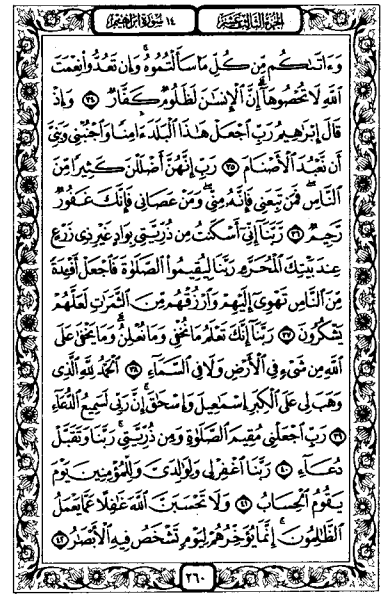 الجزء الثالث عشر ١٤ سورة إبراهيم
وَءَاتَىٰكُم مِّن كُلِّ مَا سَأَلْتُمُوهُ ۚ وَإِن تَعُدُّوا۟ نِعْمَتَ
ٱللَّهِ لَا تُحْصُوهَآ ۗ إِنَّ ٱلْإِنسَـٰنَ لَظَلُومٌ كَفَّارٌ ٣٤ وَإِذْ
قَالَ إِبْرَٰهِيمُ رَبِّ ٱجْعَلْ هَـٰذَا ٱلْبَلَدَ ءَامِنًا وَٱجْنُبْنِى وَبَنِىَّ
أَن نَّعْبُدَ ٱلْأَصْنَامَ ٣٥ رَبِّ إِنَّهُنَّ أَضْلَلْنَ كَثِيرًا مِّنَ
ٱلنَّاسِ ۖ فَمَن تَبِعَنِى فَإِنَّهُۥ مِنِّى ۖ وَمَنْ عَصَانِى فَإِنَّكَ غَفُورٌ
رَّحِيمٌ ٣٦ رَّبَّنَآ إِنِّىٓ أَسْكَنتُ مِن ذُرِّيَّتِى بِوَادٍ غَيْرِ ذِى زَرْعٍ
عِندَ بَيْتِكَ ٱلْمُحَرَّمِ رَبَّنَا لِيُقِيمُوا۟ ٱلصَّلَوٰةَ فَٱجْعَلْ أَفْـِٔدَةً
مِّنَ ٱلنَّاسِ تَهْوِىٓ إِلَيْهِمْ وَٱرْزُقْهُم مِّنَ ٱلثَّمَرَٰتِ لَعَلَّهُمْ
يَشْكُرُونَ ٣٧ رَبَّنَآ إِنَّكَ تَعْلَمُ مَا نُخْفِى وَمَا نُعْلِنُ ۗ وَمَا يَخْفَىٰ عَلَى
ٱللَّهِ مِن شَىْءٍ فِى ٱلْأَرْضِ وَلَا فِى ٱلسَّمَآءِ ٣٨ ٱلْحَمْدُ لِلَّهِ ٱلَّذِى
وَهَبَ لِى عَلَى ٱلْكِبَرِ إِسْمَـٰعِيلَ وَإِسْحَـٰقَ ۚ إِنَّ رَبِّى لَسَمِيعُ ٱلدُّعَآءِ
٣٩ رَبِّ ٱجْعَلْنِى مُقِيمَ ٱلصَّلَوٰةِ وَمِن ذُرِّيَّتِى ۚ رَبَّنَا وَتَقَبَّلْ
دُعَآءِ ٤٠ رَبَّنَا ٱغْفِرْ لِى وَلِوَٰلِدَىَّ وَلِلْمُؤْمِنِينَ يَوْمَ
يَقُومُ ٱلْحِسَابُ ٤١ وَلَا تَحْسَبَنَّ ٱللَّهَ غَـٰفِلًا عَمَّا يَعْمَلُ
ٱلظَّـٰلِمُونَ ۚ إِنَّمَا يُؤَخِّرُهُمْ لِيَوْمٍ تَشْخَصُ فِيهِ ٱلْأَبْصَـٰرُ ٤٢
٢٦٠